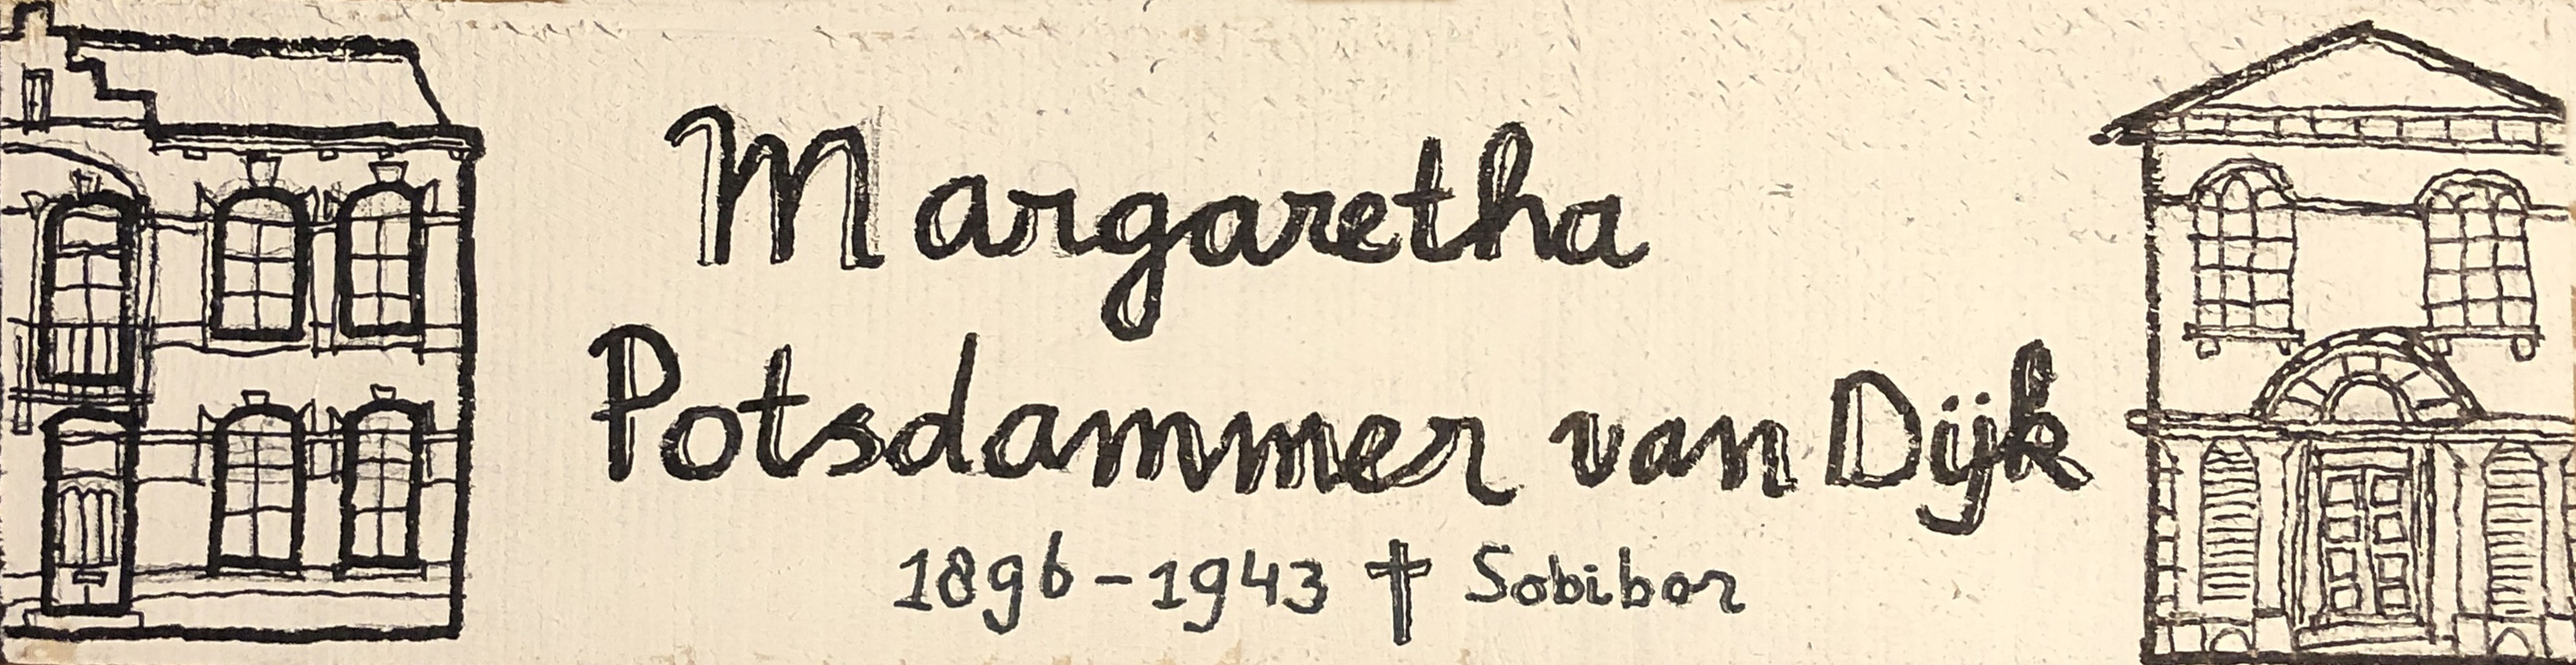 Margaretha
Potsdammer van Dijk
1896-1943 † Sobibor